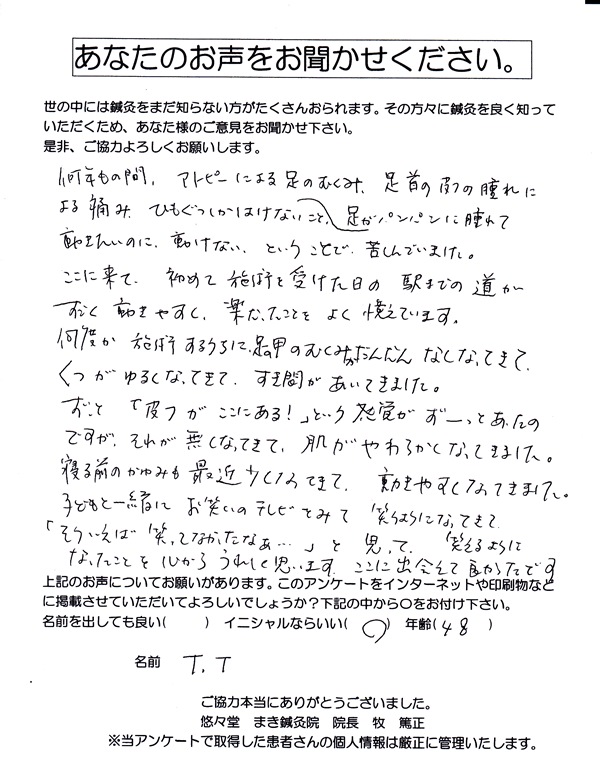 あなたのお声をお聞かせください。
世の中には鍼灸をまだ知らない方がたくさんおられます。その方々に鍼灸を良く知って
いただくため、あなた様のご意見をお聞かせ下さい。
是非、ご協力よろしくお願いします。
何年もの間、アトピーによる足のむくみ、足首の皮フの腫れに
よる痛み、ひもぐつしかはけないこと、足がパンパンに腫れて
動きたいのに、動けない、ということで、苦しんでいました。
ここに来て、初めて施術を受けた日の駅までの道が
すごく動きやすく、楽だったことをよく憶えています。
何度か施術するうちに、足の甲のむくみがだんだんなくなってきて、
くつがゆるくなってきて、すき間があいてきました。
ずっと「皮フがここにある!」という感覚がずーっとあったの
ですが、それが無くなってきて、肌がやわらかくなってきました。
寝る前のかゆみも最近少くなってきて、動きやすくなってきました。
子どもと一緒にお笑いのテレビをみて笑うようになってきて
「そういえば笑ってなかったなぁ…」と思って、笑えるように
なったことを心からうれしく思います。ここに出会えて良かったです
上記のお声についてお願いがあります。このアンケートをインターネットや印刷物など
に掲載させていただいてよろしいでしょうか?下記の中から○をお付け下さい。
名前を出しても良い(　　) イニシャルならいい( ○ ) 年齢( 48 )
名前 T.T
ご協力本当にありがとうございました。
悠々堂 まき鍼灸院 院長 牧 篤正
※当アンケートで取得した患者さんの個人情報は厳正に管理いたします。